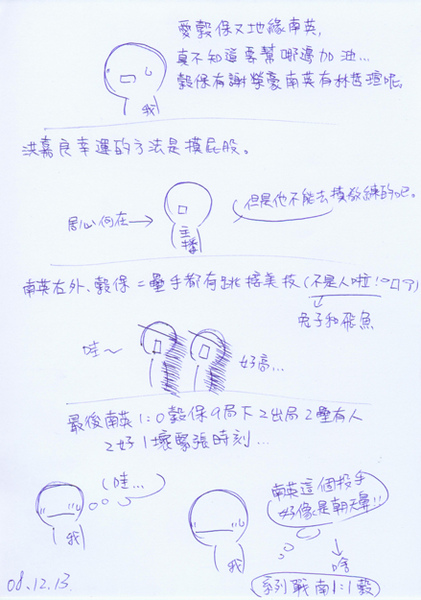 愛穀保又地緣南英,
真不知道要幫哪邊加油...
穀保有謝榮豪南英有林哲瑄呢。
我
洪嘉良幸運的方法是摸屁股。
居心何在→
主播
但是他不能去摸教練的吧。
南英右外、穀保二壘手都有跳接美技(不是人啦!
兔子和飛魚
哇~
好高...
最後南英1:0穀保9局下2出局2壘有人
2好1壞緊張時刻...
(哇...
我
南英這個投手
好像是朝天鼻!!
我
啥
系列戰南1:1穀
08.12.13.